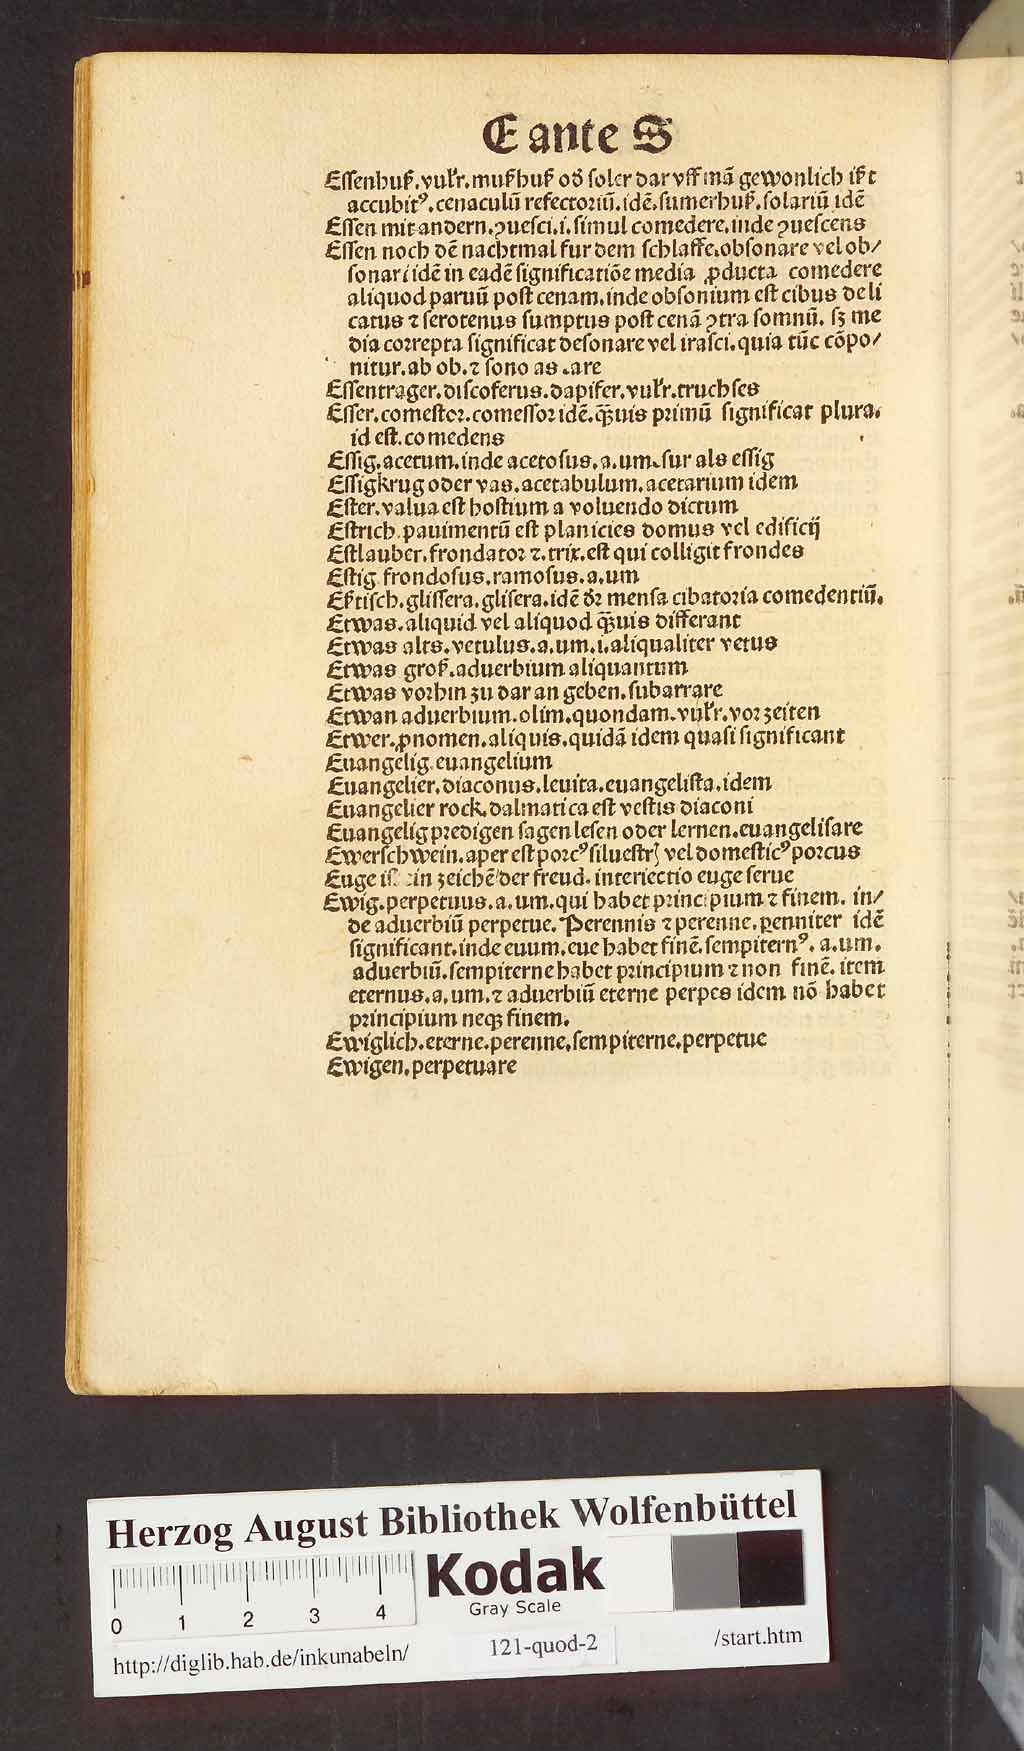 E ante S
Eſſenhuß. vulr. mußhuß od̕ ſoler dar vff mā gewonlich ißt
accubitꝰ. cenaculū refectoriū. idē. ſumerhuß. ſolariū idē
Eſſen mit andern. ꝯueſci. i. ſimul comedere. inde ꝯueſcens
Eſſen noch dē nachtmal fur dem ſchlaffe. obſonare vel ob/
ſonari idē in eadē ſignificatiōe media ꝓducta comedere
aliquod paruū poſt cenam. inde obſonium eſt cibus deli
catus ⁊ ſerotenus ſumptus poſt cenā ꝯtra ſomnū. ſꝫ me
dia correpta ſignificat deſonare vel iraſci. quia tūc cōpo/
nitur. ab ob. ⁊ ſono as .are
Eſſentrager. diſcoferus. dapifer. vulr. truchſes
Eſſer. comeſtor. comeſſor idē. qꝫuis primū ſignificat plura.
id eſt. comedens
Eſſig. acetum. inde acetoſus. a. um. ſur als eſſig
Eſſigkrug oder vas. acetabulum. acetarium idem
Eſter. valua eſt hoſtium a voluendo dictum
Eſtrich. pauimentū eſt planicies domus vel edificij
Eſtlauber. frondator ⁊. trix. eſt qui colligit frondes
Eſtig frondoſus. ramoſus. a. um
Eßtiſch. gliſſera. gliſera. idē dr̄ menſa cibatoria comedentiū.
Etwas. aliquid vel aliquod qꝫuis differant
Etwas alts. vetulus. a. um. i. aliqualiter vetus
Etwas groß. aduerbium aliquantum
Etwas vorhin zu dar an geben. ſubarrare
Etwan aduerbium. olim. quondam. vulr. vor zeiten
Etwer. ꝓnomen. aliquis. quidā idem quaſi ſignificant
Euangelig. euangelium
Euangelier. diaconus. leuita. euangeliſta. idem
Euangelier rock. dalmatica eſt veſtis diaconi
Euangelig predigen ſagen leſen oder lernen. euangeliſare
Ewerſchwein. aper eſt porcꝰ ſilueſtrꝭ vel domeſticꝰ porcus
Euge iſt ein zeichē der freud. interiectio euge ſerue
Ewig. perpetuus. a. um. qui habet principium ⁊ finem. in/
de aduerbiū perpetue. Perennis ⁊ perenne. ꝑenniter idē
ſignificant. inde euum. eue habet finē. ſempiternꝰ. a. um.
aduerbiū. ſempiterne habet principium ⁊ non finē. item
eternus. a. um. ⁊ aduerbiū eterne perpes idem nō habet
principium neqꝫ finem.
Ewiglich. eterne. perenne. ſempiterne. perpetue
Ewigen. perpetuare
Herzog August Bibliothek Wolfenbüttel
Kodak
Gray Scale
0 1 2 3 4
http://diglib.hab.de/inkunabeln/ 121-quod-2 /start.htm